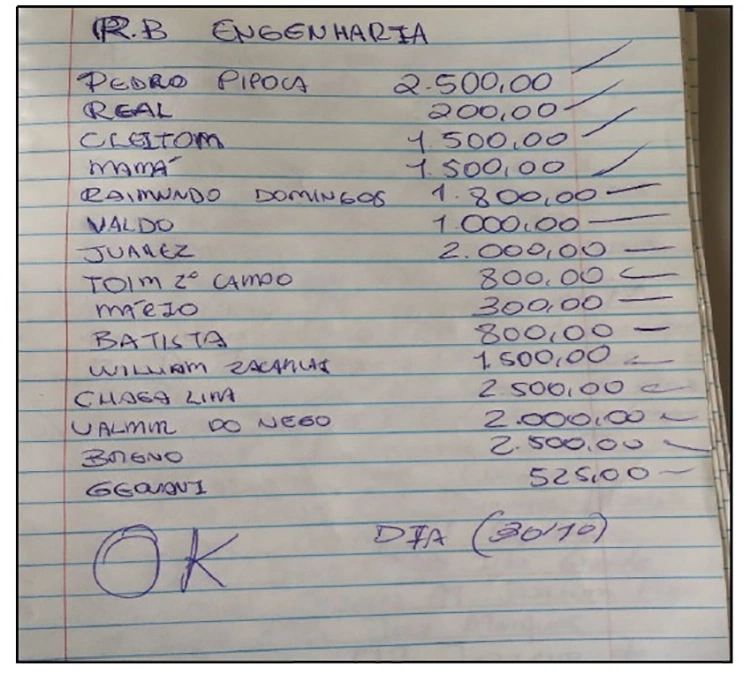 R.B ENGENHARIA
PEDRO PIPOCA 2.500,00
REAL 200,00
CLEITOM 1.500,00
MAMÁ 1.500,00
RAIMUNDO DOMINGOS 1.800,00
VALDO 1.000,00
JUAREZ 2.000,00
TOIM 2º CAMPO 800,00
MÁRIO 300,00
BATISTA 800,00
WILLIAM 1.500,00
CHAGA LIMA 2.500,00
VALMIR DO NEGO 2.000,00
2.500,00
GEOVANI 525,00
OK DIA (30/10)